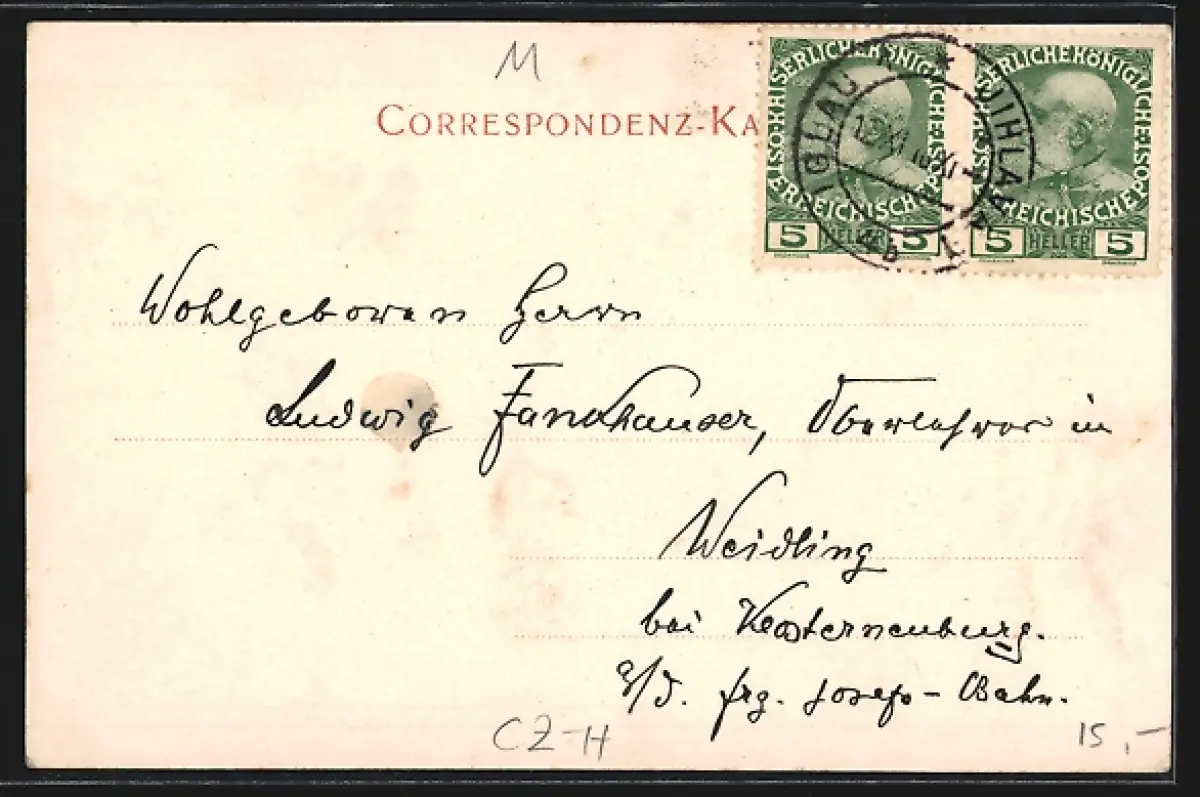 M
CORRESPONDENZ-KA
KAISERLICHE KÖNIGLICHE ÖSTERREICHISCHE POST
5 HELLER 5
KAISERLICHE KÖNIGLICHE ÖSTERREICHISCHE POST
5 HELLER 5
IGLAU * JIHLAVA
Wohlgeboren Herrn
Ludwig Fankhauser, Oberlehrer in
Weidling
bei Klosterneuburg.
a/d. frz. Josefs-Bahn.
CZ-H
15,-